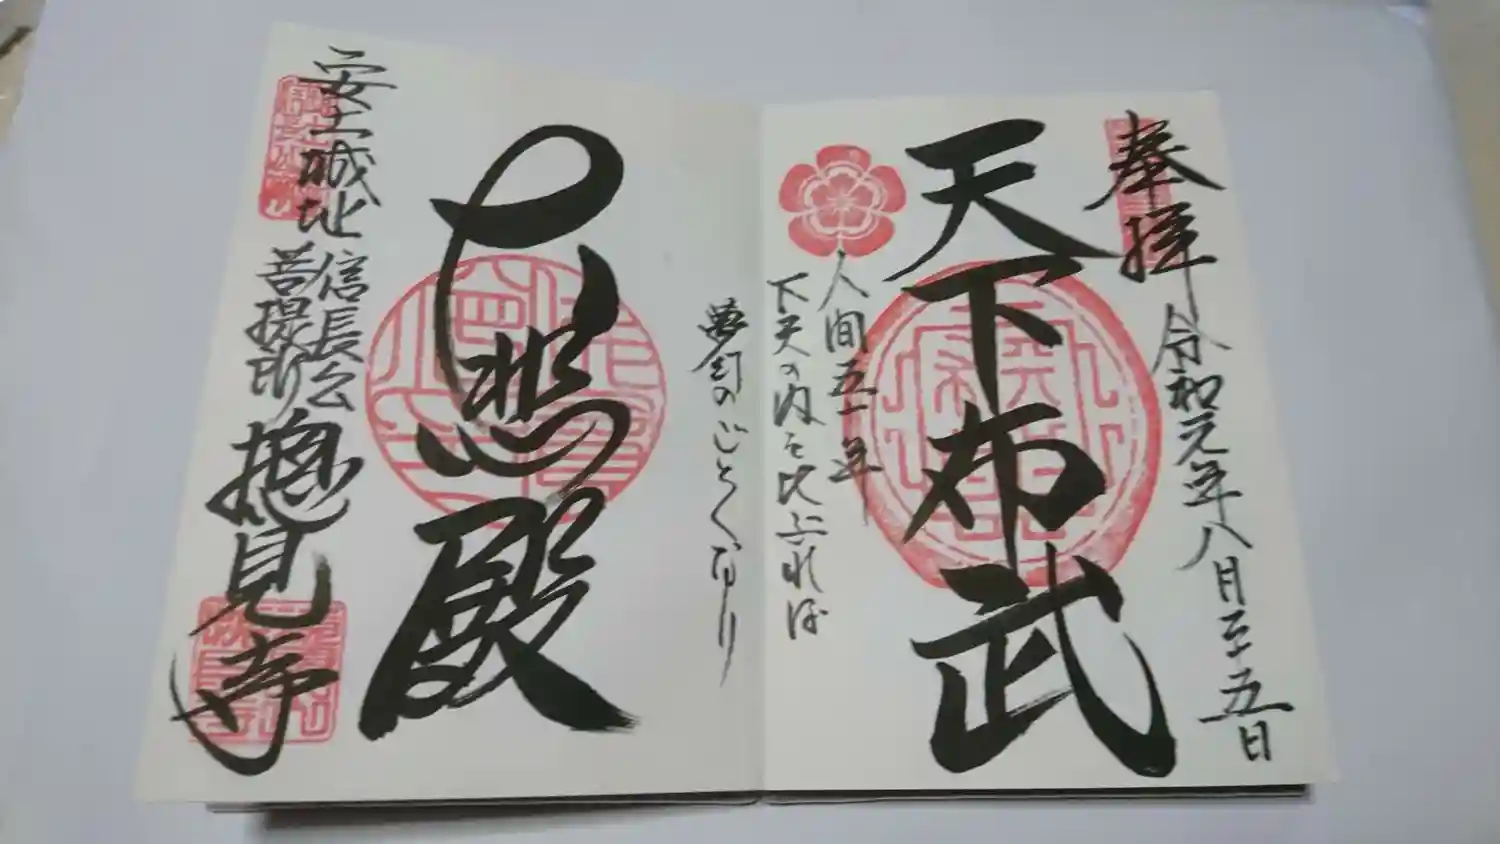 奉拝
令和元年八月二十五日
天下布武
人間五十年
下天の内を比ぶれば
夢幻のごとくなり
大悲殿
安土城址
信長公
菩提所
摠見寺